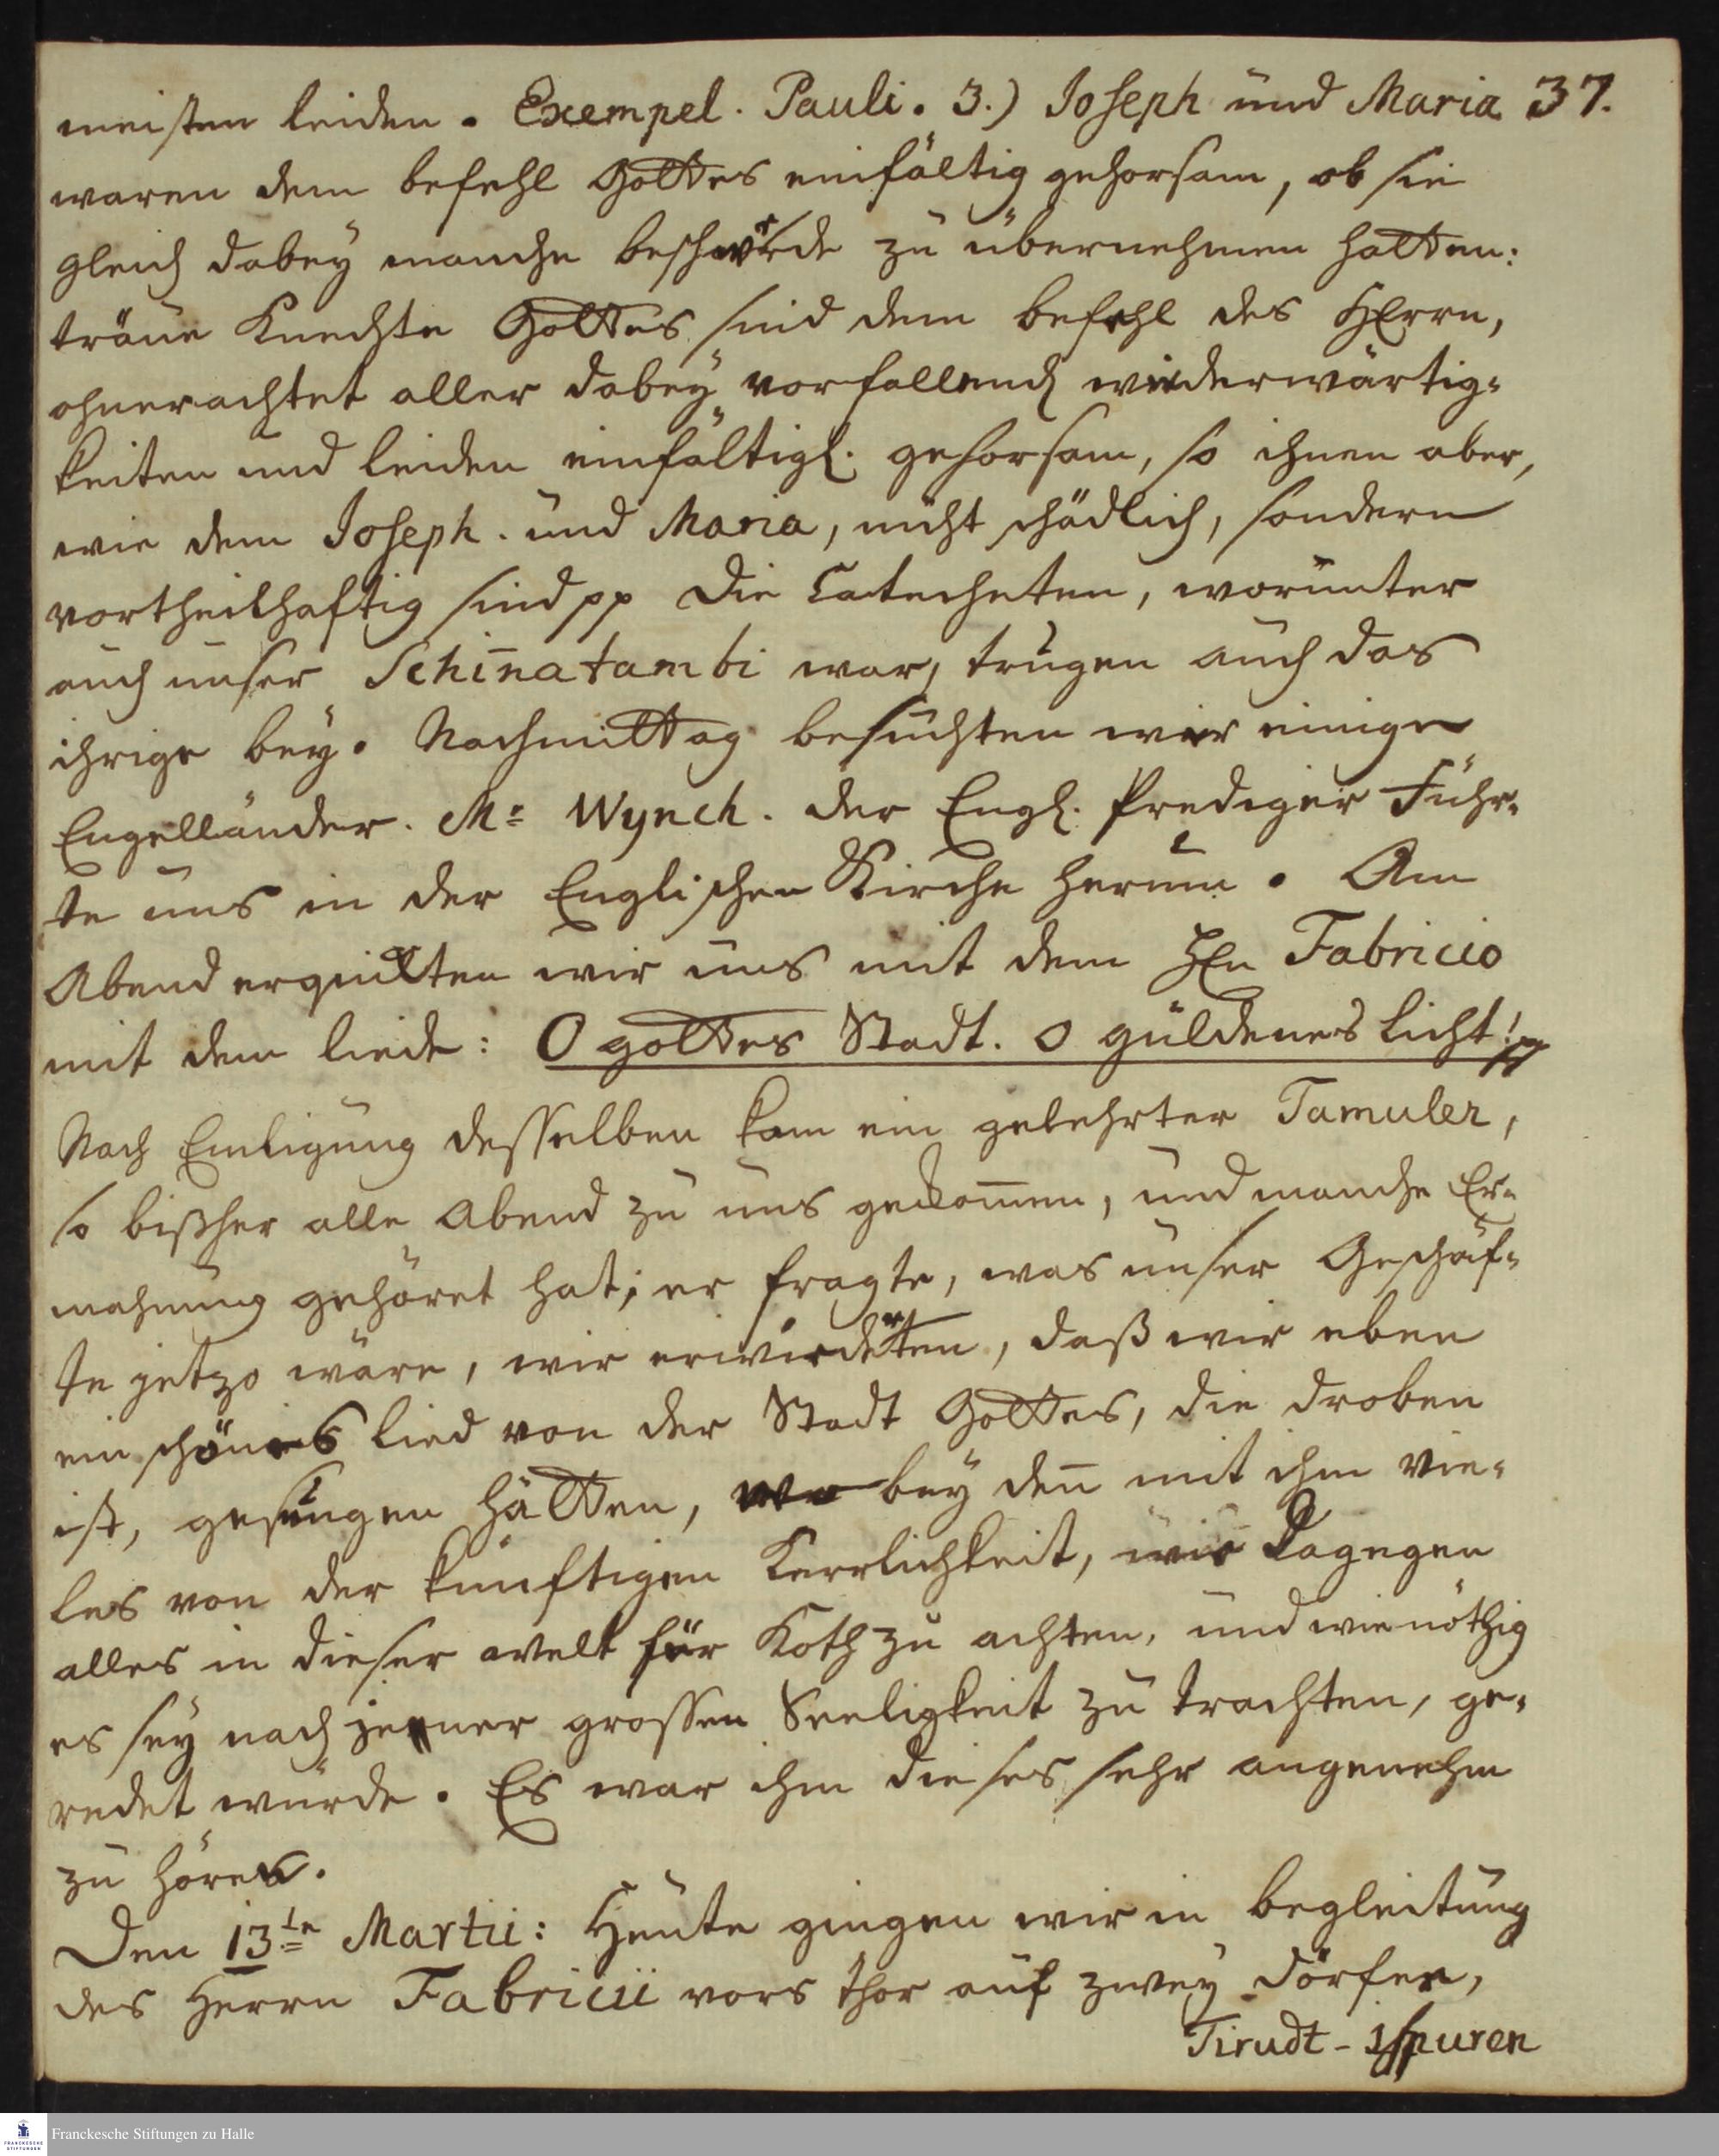 meisten leiden. Exempel. Pauli. 3.) Joseph und Maria 37.
waren dem befehl Gottes einfältig gehorsam, ob sie
gleich dabeÿ manche beschwerde zu übernehmen hatten:
träue Knechte Gottes sind dem befehl des HErrn,
ohnerachtet aller dabeÿ vorfallend wiederwärtig-
keiten und leiden einfältigl. gehorsam, so ihnen aber,
wie dem Joseph. und Maria, nicht schädlich, sondern
vortheilhaftig sind pp Die Catecheten, worunter
auch unser Schin̄atambi war, trugen auch das
ihrige beÿ. Nachmittag besuchten wir einige
Engelländer. Mr Wynch. der Engl. Prediger Führ-
te uns in der Englischen Kirche herum. Am
Abend erquickten wir uns mit dem HEn Fabricio
mit dem liede: O Gottes Stadt. O güldenes Licht! pp
Nach Endigung desselben kam ein gelehrter Tamuler,
so bißher alle Abend zu uns gekom̄en, und manche Er-
mahnung gehöret hat; er fragte, was unser Geschäf-
te jetzo wäre, wir erwiederten, daß wir eben
ein schönes lied von der Stadt Gottes, die droben
ist, gesungen hätten, wo beÿ den̄ mit ihm vie-
les von der künftigen Herrlichkeit, wie dagegen
alles in dieser welt für Koth zu achten, und wie nöthig
es seÿ nach jenner grossen Seeligkeit zu trachten, ge-
redet wurde. Es war ihm dieses sehr angenehm
zu hören.
Den 13te Martii: Heute gingen wir in begleitung
des Herrn Fabricii vors thor auf zweÿ Dörfer,